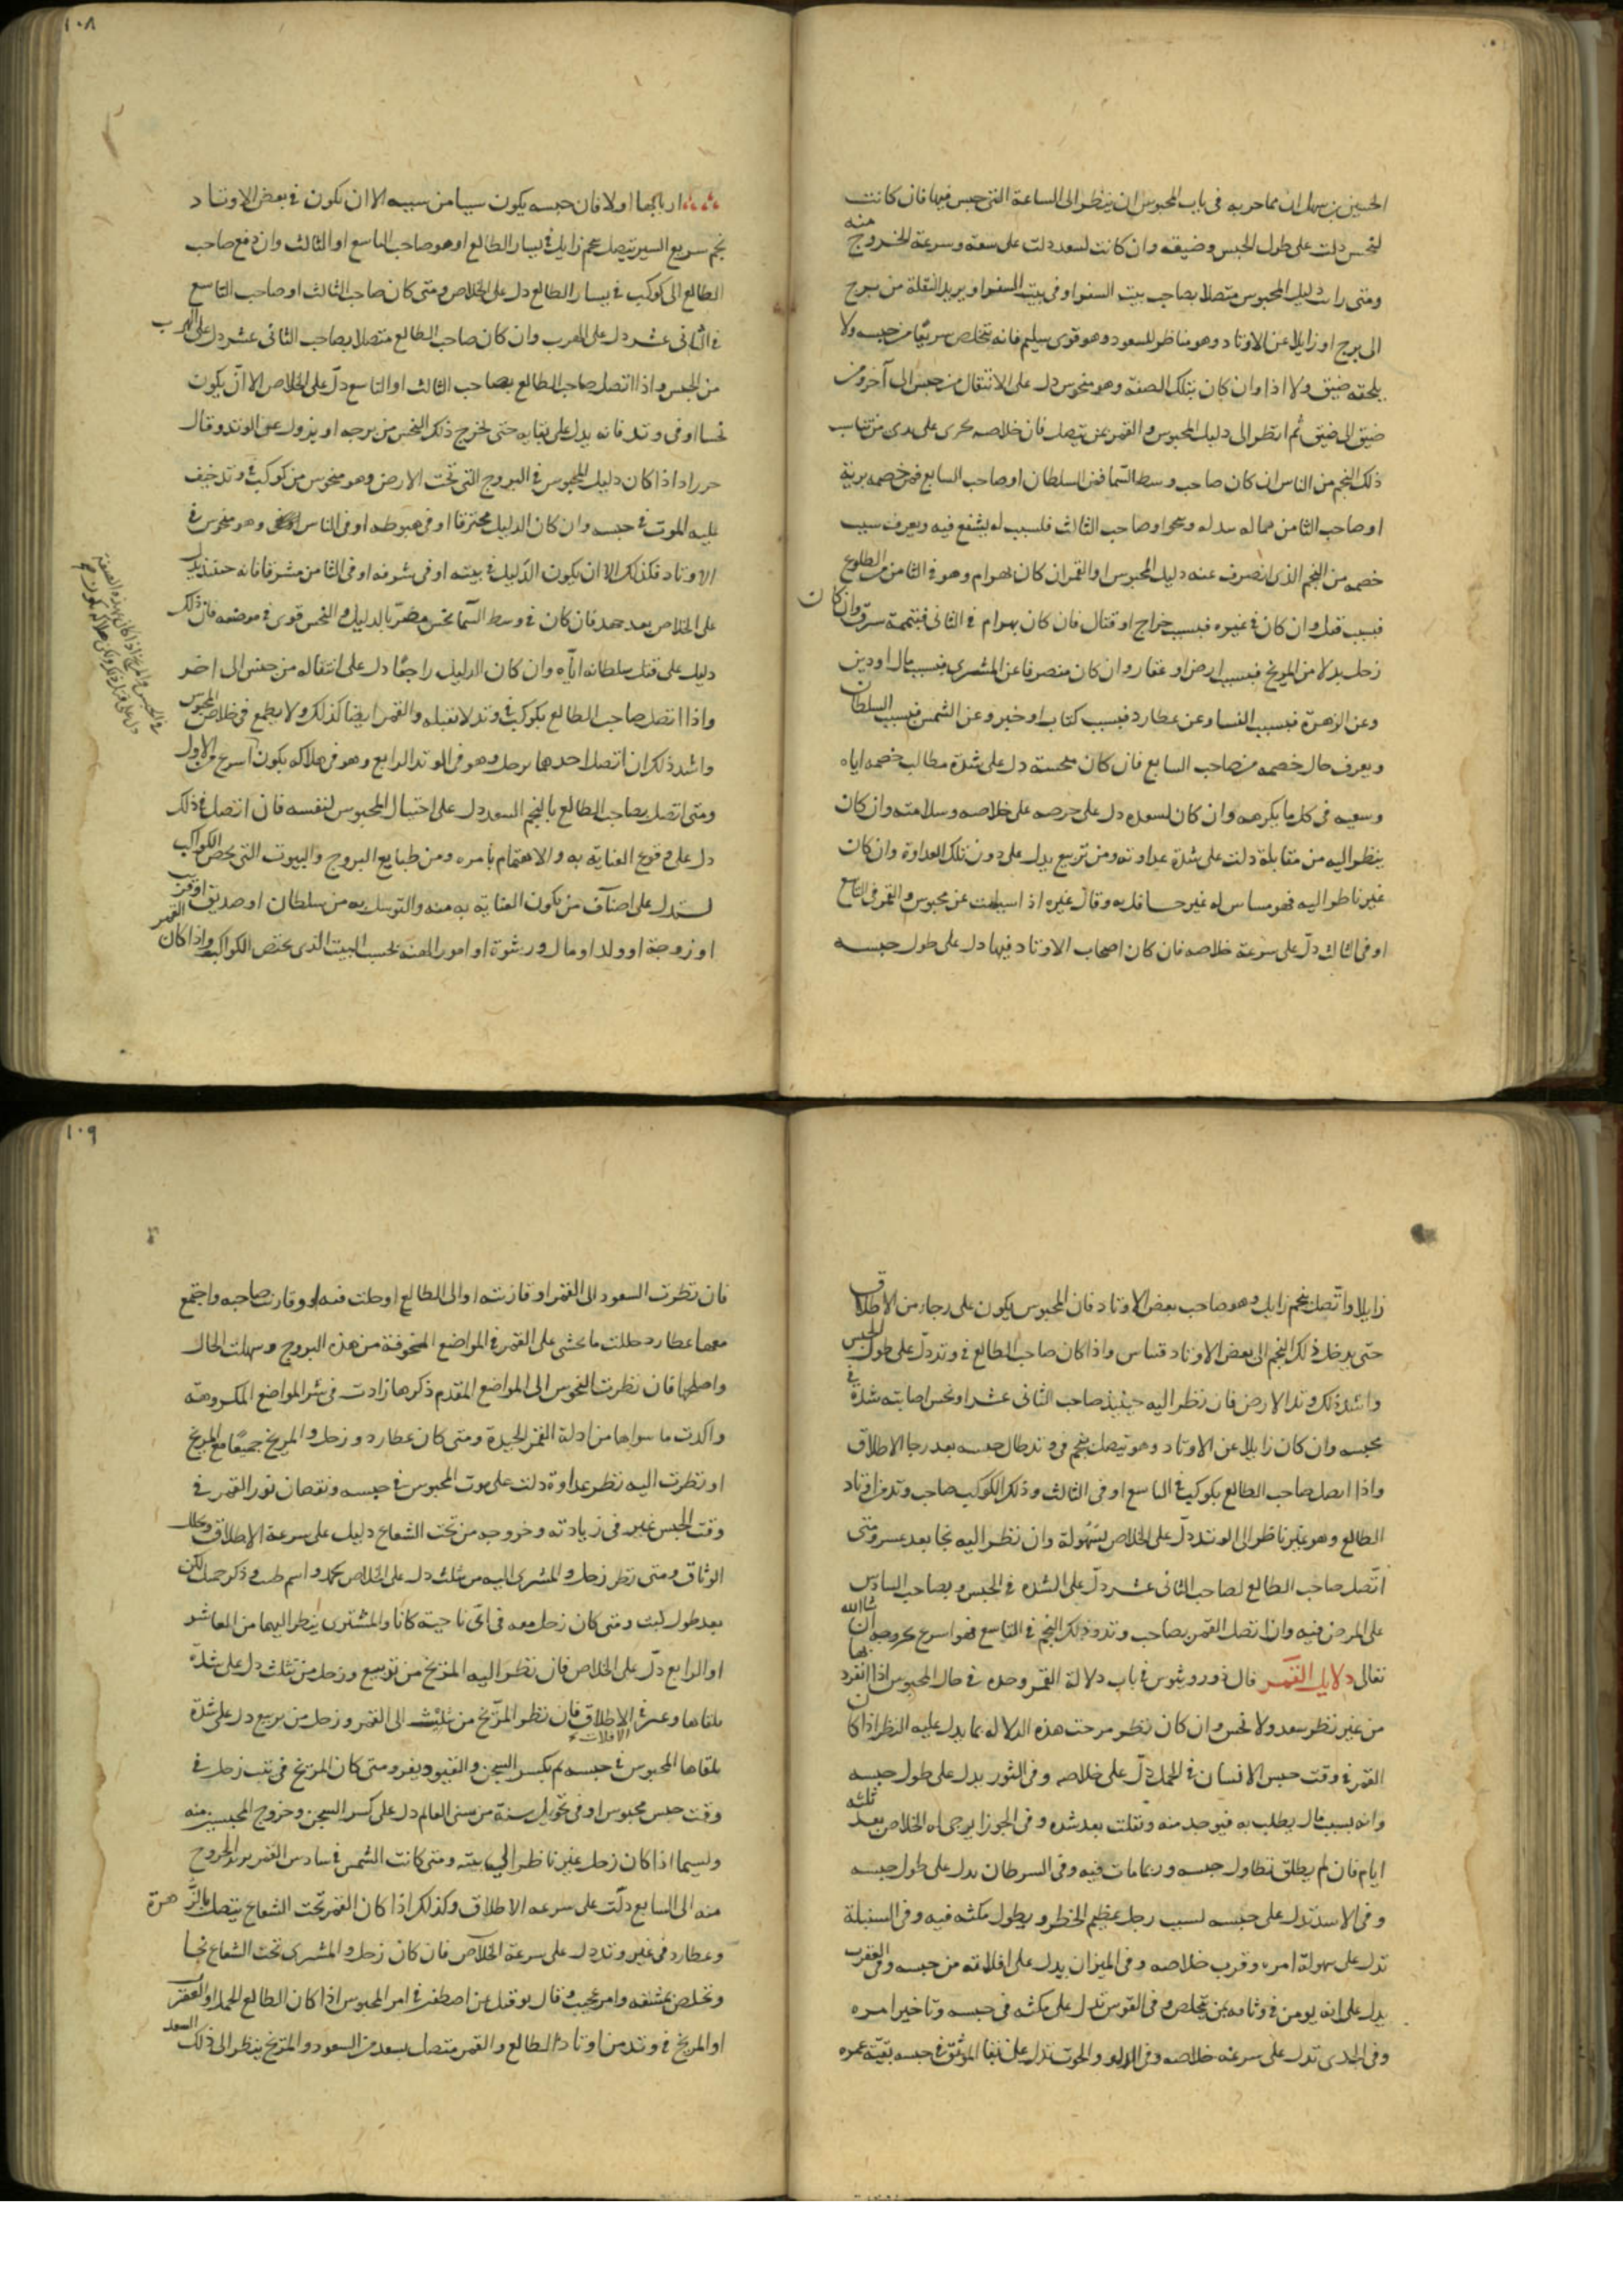 ١٠٨
الحسن بن سهل ان مما جربه فى باب المحبوس ان ينظر الى الساعة التى حبس فيها فان كانت
لنحس دلت على طول الحبس وضيقه وان كانت لسعد دلت على سعة وسرعة الخروج منه
ومتى رات دليل المحبوس متصلا بصاحب بيت السفر او فى بيت السفر او يريد النقلة من برج
الى برج او زايلا عن الاوتاد وهو مناظر للسعود وهو قوى سليم فانه يتخلص سريعا من حبسه ولا
يلحقه ضيق ولا اذا وان كان بتلك الصفة وهو منحوس دل على الانتقال من حبس الى آخر ومن
ضيق الى ضيق ثم انظر الى دليل المحبوس والقمر عن يتصل فان خلاصه يجرى على يدى من تناسب
ذلك النجم من الناس ان كان صاحب وسط السما فمن السلطان او صاحب السابع فمن خصمه برية
او صاحب الثامن فماله او صاحب الثالث فلسبب له يشفع فيه ويعرف سبب
خصمه من النجم الذى انصرف عنه دليل المحبوس او القمر ان كان بهرام وهو فى الثامن من الطلوع
فبسبب قتل وان كان فى غيره فبسبب خراج او قتال فان كان بهرام فى الثانى فبتهمة سرق وان كان
زحل بدلا من المريخ فبسبب ارض او عقار وان كان منصرفا عن المشترى فبسبب مال او دين
وعن الزهرة فبسبب النسا وعن عطارد فبسبب كتاب او خبر وعن الشمس فبسبب السلطان
ويعرف حال خصمه من صاحب السابع فان كان محسته دل على شدة مطالب خصمه اياه
وسعيه فى كل ما يكرهه وان كان لسعده دل على حرصه على خلاصه وسلامته وان كان
ينظر اليه من مقابلة دلت على شدة عداوته ومن تربيع يدل على دون تلك العداوة وان كان
غير ناظر اليه فهو مساس له غير حافل به وقال غيره اذا سيلت عن محبوس والقمر فى التاسع
او فى الثالث دل على سرعة خلاصه فان كان اصحاب الاوتاد فيها دل على طول حبسه
ارباجها اولا فان حبسه يكون سببا من سببه الا ان يكون فى بعض الاوتاد
نجم سريع السير يتصل بنجم زايل فى يسار الطالع او هو صاحب التاسع او الثالث وان دفع صاحب
الطالع الى كوكب فى يسار الطالع دل على الخلاص ومتى كان صاحب الثالث او صاحب التاسع
فى الثانى عشر دل على الهرب وان كان صاحب الطالع متصلا بصاحب الثانى عشر دل على الهرب
من الحبس واذا اتصل صاحب الطالع بصاحب الثالث او التاسع دل على الخلاص الا ان يكون
نحسا او فى وتد فانه يدل على بقايه حتى يخرج ذلك النحس من برجه او يزول عن الوتد وقال
حرراد اذا كان دليل المحبوس فى البروج التى تحت الارض وهو منحوس من كوكب فى وتد خيف
عليه الموت فى حبسه وان كان الدليل محترقا او فى هبوطه او فى الثامن وهو منحوس فى
الاوتاد فكذلك الا ان يكون الدليل فى بيته او فى شرفه او فى الثامن مشرفا فانه حينئذ يدل
على الخلاص بعد جهد فان كان فى وسط السما نحس مضر بالدليل والنحس قوى فى موضعه فان ذلك
دليل على قتل سلطانه اياه وان كان الدليل راجعا دل على انتقاله من حبس الى اخر
واذا اتصل صاحب الطالع بكوكب فى وتد لا يقبله والقمر ايضا كذلك ولا يطمع فى خلاص المحبوس
واشد ذلك ان اتصل احدهما بزحل وهو فى الوتد الرابع وهو فى هلاكه يكون اسرع من الاول
ومتى اتصل بصاحب الطالع بالنجم السعد دل على احتيال المحبوس لنفسه فان اتصل فى ذلك
دل على وقوع العناية به والاهتمام بامره ومن طبايع البروج والبيوت التى تخص الكواكب
لستدل على اصناف من يكون العناية به منه والتوسل به من سلطان او صديق او قرب
او زوجة او ولد او مال ورشوة او امور الهية بحسب البيت الذى يختص الكواكب واذا كان القمر
١٠٩
زايلا واتصل بنجم زايل وهو صاحب بعض الاوتاد فان المحبوس يكون على رجاء من الاطلاق
حتى يدخل ذلك النجم الى بعض الاوتاد واذا كان صاحب الطالع فى وتد دل على طول الحبس
واشد ذلك وتد الارض فان نظر اليه حينئذ صاحب الثانى عشر او نحس اصابته شدة فى
محبسه وان كان زايلا عن الاوتاد وهو يتصل بنجم فى وتد طال حبسه بعد رجا الاطلاق
واذا اتصل صاحب الطالع بكوكب فى التاسع او فى الثالث وذلك الكوكب صاحب وتد من اوتاد
الطالع وهو غير ناظر الى الوتد دل على الخلاص بسهولة وان نظر اليه نجا بعد عسر ومتى
اتصل صاحب الطالع لصاحب الثانى عشر دل على الشدة فى الحبس وبصاحب السادس
على المرض فيه وان اتصل القمر بصاحب وتد وذلك النجم فى التاسع فهو اسرع لخروجه ان شا الله
تعالى دلايل القمر قال ذوروثيوس فى باب دلالة القمر وحده فى حال المحبوس اذا انفرد بها
من غير نظر سعد ولا نحس وان كان نظر مزجت هذه الدلاله بما يدل عليه النظر اذا كان
القمر فى وقت حبس الانسان فى الحمل دل على خلاصه وفى الثور يدل على طول حبسه
وانه بسبب مال يطلب به فيوخذ منه ويفلت بعد شدة وفى الجوزا يرجى له الخلاص بعد ثلثه
ايام فان لم يطلق تطاول حبسه وربما مات فيه وفى السرطان يدل على طول حبسه
وفى الاسد تدل على حبسه لسبب رجل عظيم الخطر ويطول مكثه فيه وفى السنبلة
تدل على سهولة امره وقرب خلاصه وفى الميزان يدل على افلاته من حبسه وفى العقرب
يدل على انه يومن فى وثاقه بمن يتخلص وفى القوس تدل على مكثه فى حبسه وتاخير امره
وفى الجدى تدل على سرعة خلاصه وفى الدلو والحوت تدل على بقا الموثق فى حبسه بقية عمره
فان نظرت السعود الى القمر او قارنته او الى الطالع او حلت فيه او قارنت صاحبه واجتمع
معها عطارد حللت ما يخشى على القمر فى المواضع المخوفة من هذه البروج وسهلت الحال
واصلحها فان نظرت النحوس الى المواضع المقدم ذكرها زادت فى شر المواضع المكروهة
واكدت ما سواها من ادلة القمر الجيدة ومتى كان عطارد وزحل والمريخ جميعا مع المريخ
او نظرت اليه نظر عداوة دلت على موت المحبوس فى حبسه ونقصان نور القمر فى
وقت الحبس غير فى زيادته وخروجه من تحت الشعاع دليل على سرعة الاطلاق وتحلل
الوثاق ومتى نظر زحل والمشترى اليه من تثليث دل على الخلاص بحمد واسم طيب وذكر جميل لكن
بعد طول لبث ومتى كان زحل معه فى اى ناحية كانا والمشترى ينظر اليهما من العاشر
او الرابع دل على الخلاص فان نظر اليه المريخ من تربيع وزحل من تثليث دل على شدة
يلقاها وعسر فى الاطلاق فان نظر المريخ من تثليث الى القمر وزحل من تربيع دل على شدة
الافلات
يلقاها المحبوس فى حبسه ثم يكسر السجن والقيود ويفر ومتى كان المريخ فى بيت زحل فى
وقت حبس محبوس او فى تحويل سنة من سنى العالم دل على كسر السجن وخروج المحبسين منه
وليسما اذا كان زحل غير ناظر الى بيته ومتى كانت الشمس فى سادس القمر يريد الخروج
منه الى السابع دلت على سرعه الاطلاق وكذلك اذا كان القمر تحت الشعاع يتصل بالزهرة
وعطارد فى غير وتد دل على سرعة الخلاص فان كان زحل والمشترى تحت الشعاع نجا
وتخلص بمشقه وامر عجيب وقال نوفيل عن اصطفن فى امر المحبوس اذا كان الطالع الحمل او العقرب
او المريخ فى وتد من اوتاد الطالع والقمر متصل بسعد من السعود والمريخ ينظر الى ذلك السعد